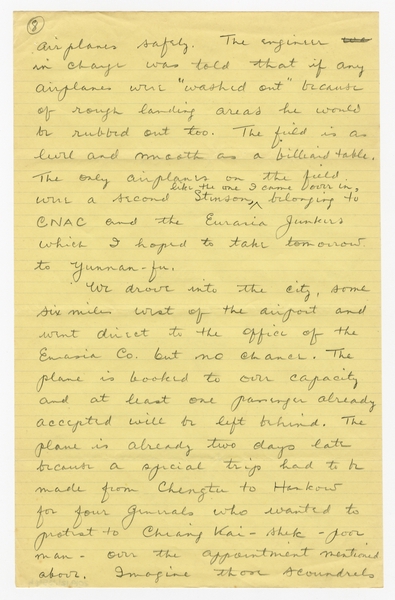 3
airplanes safely. The engineer
in charge was told that if any
airplanes were "washed out" because
of rough landing areas he would
be rubbed out too. The field is as
level and smooth as a billiard table.
The only airplanes on the field
like the one I came over in,
were a second Stinson, belonging to
CNAC and the Eurasia Junkers
which I hoped to take tomorrow
to Yunnan-fu.
We drove into the city, some
six miles west of the airport and
went direct to the office of the
Eurasia Co. but no chance. The
plane is booked to over capacity
and at least one passenger already
accepted will be left behind. The
plane is already two days late
because a special trip had to be
made from Chengtu to Hankow
for four Generals who wanted to
protest to Chiang Kai-shek - poor
man - over the appointment mentioned
above. Imagine those scoundrels